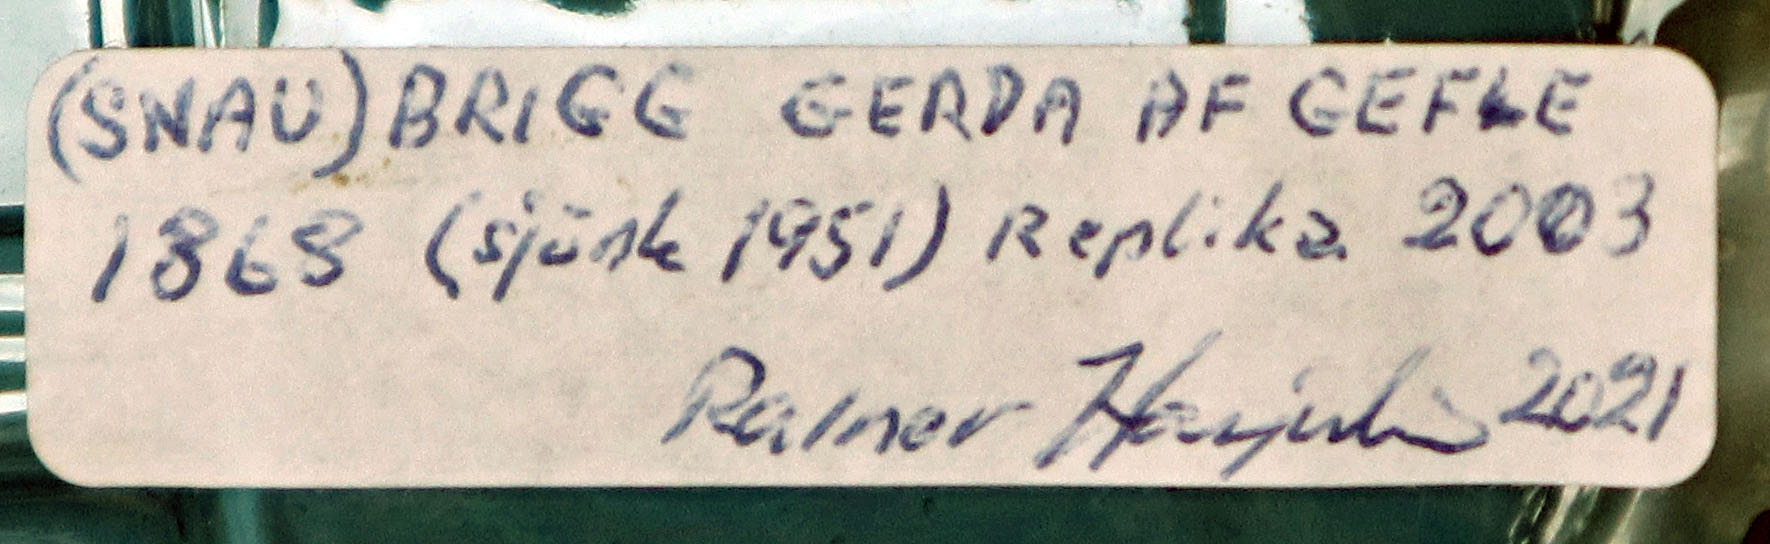 (SNAU) BRIGG GERDA AF GEFLE
1868 (sjönk 1951) Replika 2003
Rainer 2021